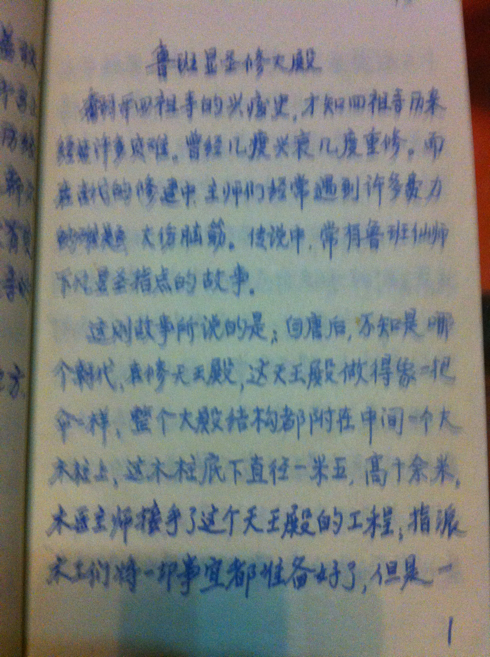 鲁班显圣修大殿
翻开四祖寺的兴废史，才知四祖寺历来
经过许多灾难，曾经几度兴衰几度重修。而
在古代的修建中主师们经常遇到许多费力
的难题 大伤脑筋。传说中，常有鲁班仙师
下凡显圣指点的故事。
这则故事所说的是；自唐后，不知是哪
个朝代，在修天王殿，这天王殿做得象一把
伞一样，整个大殿结构都附在中间一个大
木柱上，这木柱底下直径一米五，高十余米，
木匠主师接手了这个天王殿的工程，指派
木工们将一切事宜都准备好了，但是一
1